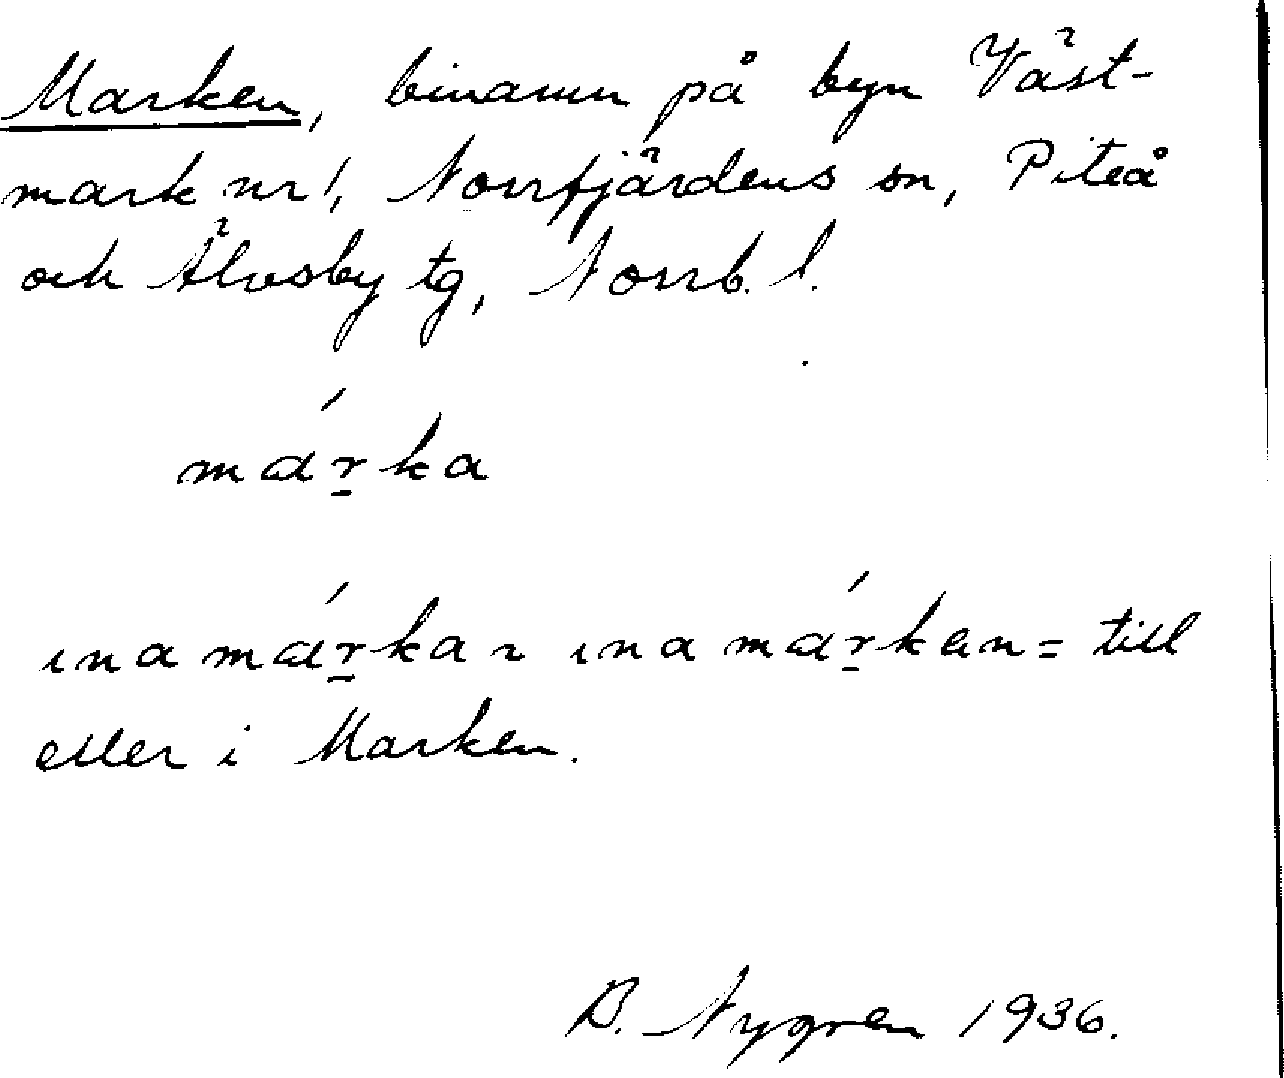 Marken, binamn på byn Väst-
mark nr 1, Norrfjärdens sn, Piteå
och Älvsby tg, Norrb. l.
má̱rka
ına má̱rka ~ ına má̱rkan = till
eller i Marken.
B. Nygren 1936.